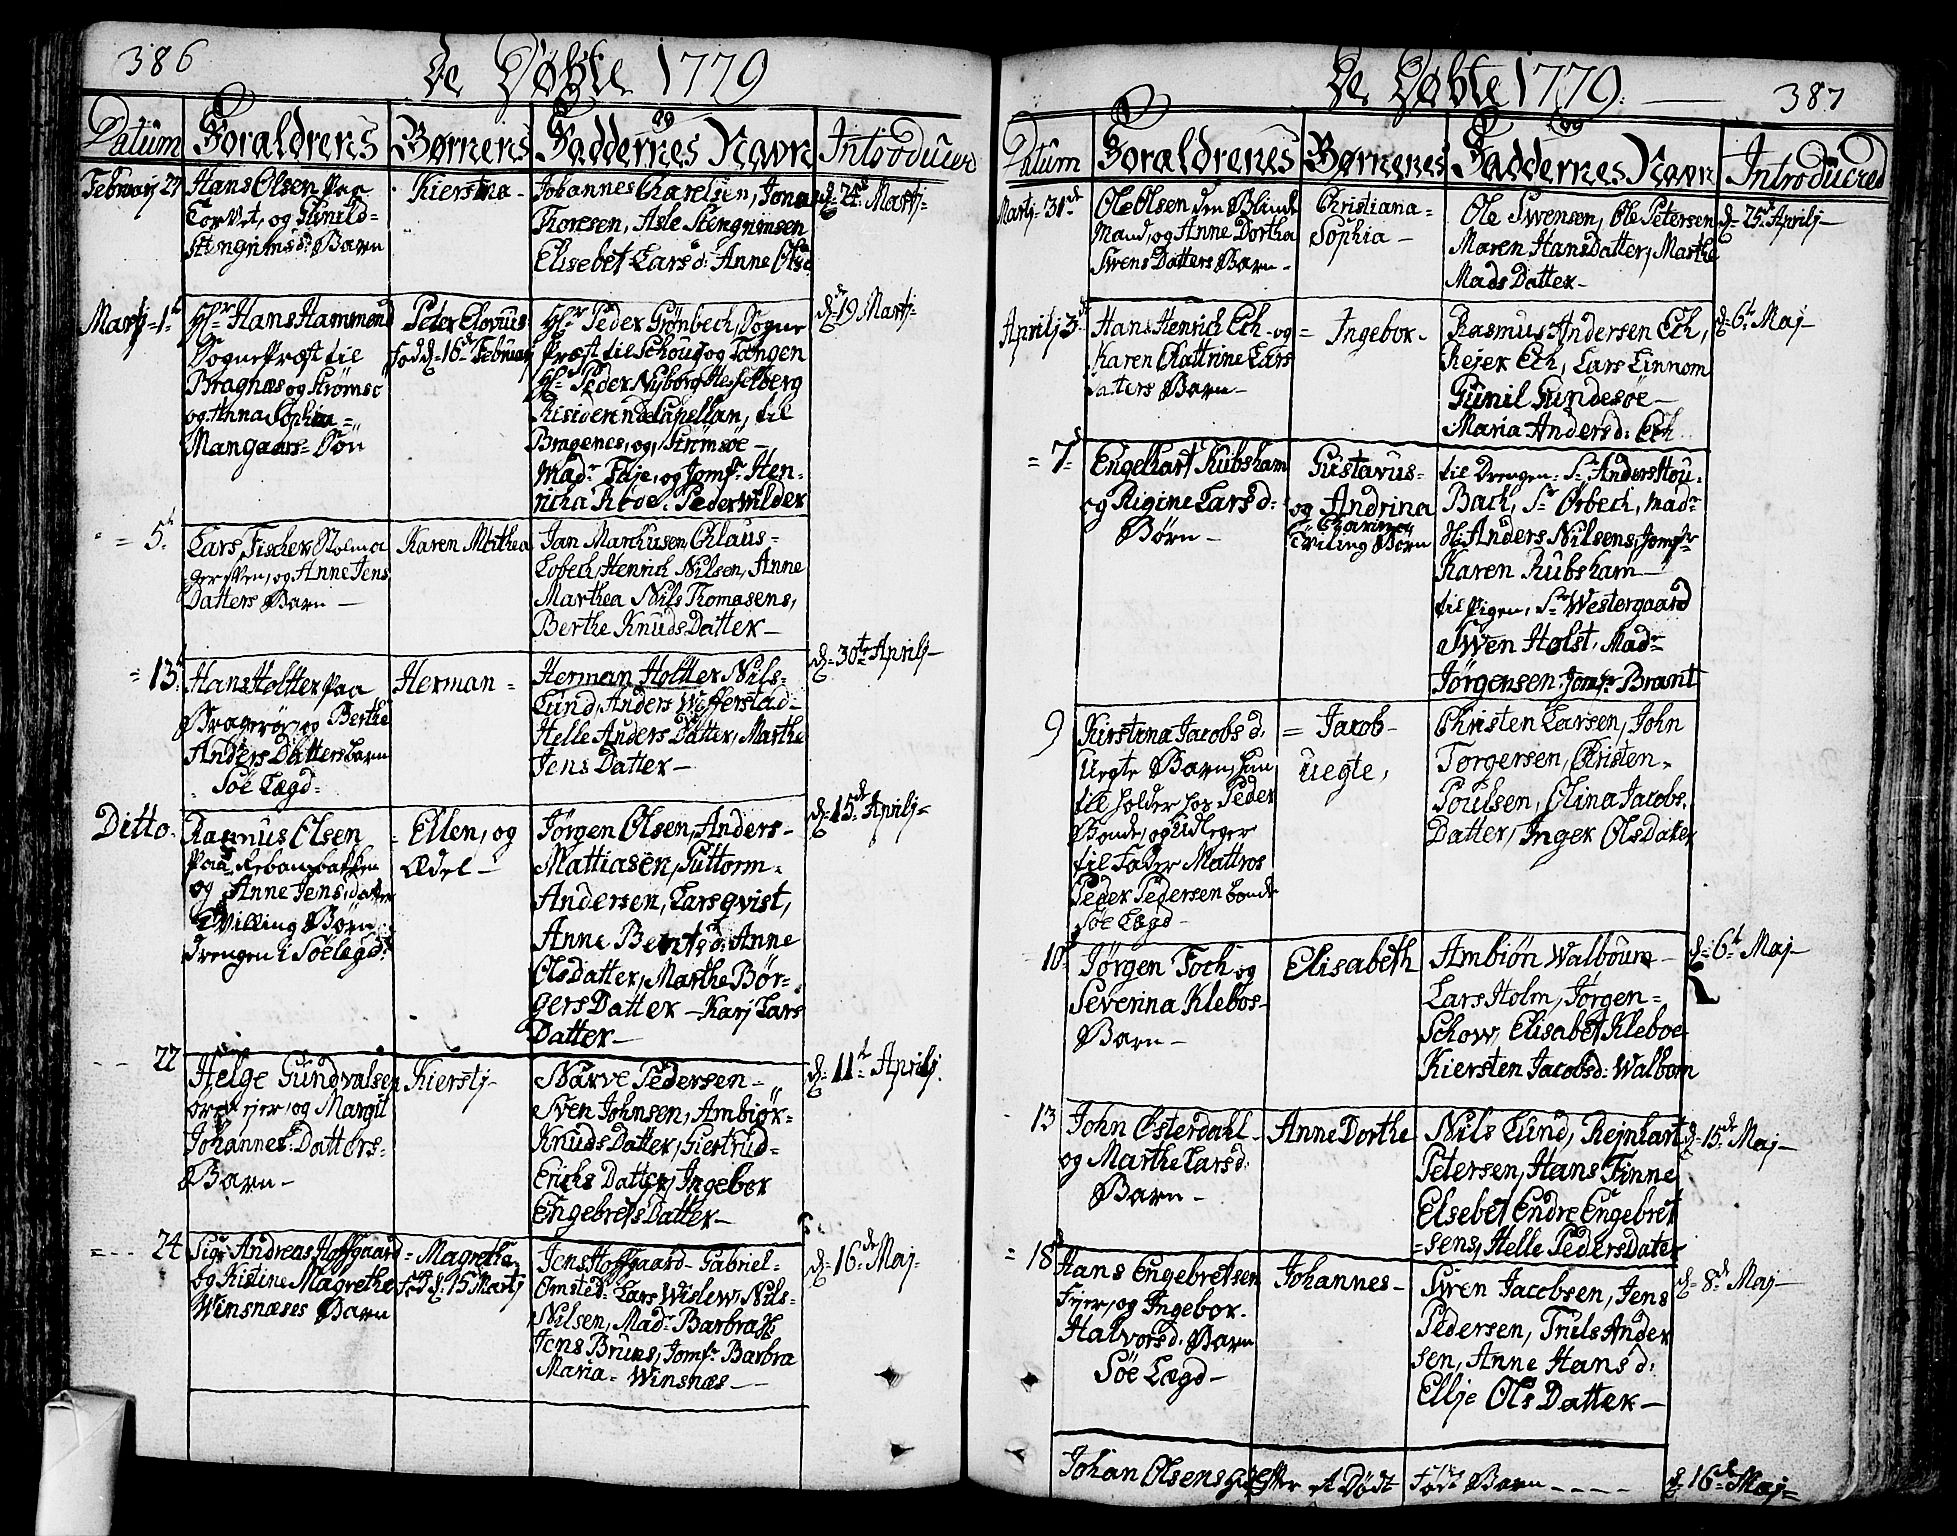 386
De Døbte 1779
Datum
Foraldrens
Børnens
og
Faddernes Navn
Introduced
Februarj 27
Hans Olsen paa
Torvet, og Gunild=
Stengrimsd: Barn
Kierstina -
Johannes Charelsen, Jonas
Thoresen, Asle Stengrimsen
Elisebet Larsd: Anne Olsd
d= 22d Martj-
Martj=1t
Hr Hans Hammond
Sogne Præst til
Bragnæs og Strømsø
og Anna Sophia =
Mangaars= Søn
Peter Clovius
fød d=16d Februarj
Hr Peder Grønbech, Sogne
Præst til Schoug og Tangen
Hr Peder Nyborg Hesselberg
Residerende Capellan, til
Bragenes, og, Strømsøe -
Madr Thje, og Jomfr Hen-
richa Rode. Peder Wilder
de=19 Martj-
= 5t
Lars Fischer Rolma
ger Sven, og Anne Jens
Datters Barn -
Karen Mathea
Jan Marchusen Chlaus-
Lobech, Henrich Nilsen, Anne
Marthea Nils Thomasens,
Berthe Knuds Datter -
= 13t
Hans Holtter paa
Bragerøe, og Berthe
Anders Datters barn
Søe Lægd=
Herman =
Herman Holtter Nils-
Lund, Anders Wifferstad-
Helle Anders Datter, Marthe
Jens Datter -
d= 30te Aprilj-
Ditto.
Rasmus Olsen
Paa Rebansbakken
og Anne Jens datter
Tvilling Børn
drengen i Søelægd:
Ellen, og
Ædel -
Jørgen Olsen, Anders-
Mattiasen, Guttorm-
Andersen, Lars qvist,
Anne Bentsd. Anne
Olsdatter, Marthe Bør-
gers Datter - Karj Lars
Datter -
d= 15de Aprilj=
22
Helge Gundvalsen
og Margit
Johannes-Datters-
Barn -
Kierstj-
Narve Pedersen-
Sven Johnsen, Ambiør-
Knuds Datter, Giertrud-
Erichs Datter, Ingebor
Engebrets Datter -
d= 11t Aprilj.
=--- 24
Sigr Andreas Hoffgaard
og Kistine Magrethe
Winsnæses Barn
= Magretha
fød d: 15 Martj
Jens Hoffgaard- Gabriel-
Omsted- Lars Wislew, Nils-
Nilsen, Madr Barbra H
Jens Bruns, Jomfr Barbra
Maria = Winsnæs -
d= 16de Maj-
De Døbte 1779.
387
Datum
Foraldrenes
Børnenes
og
Faddernes Navn
Introduced
Martj- 31de
Ole Olsen den Blinde
Mand, og Anne Dortha
Svens Datters Barn -
Christiana=
Sophia -
Ole Swensen, Ole Petersen
Maren Hans Datter, Marthe
Mads Datter -
d= 25de Aprilj-
Aprilj 3de
Hans Henrich Eck - og
Karen Chattrine Lars
datters Barn -
= Ingebor -
Rasmus Andersen Eck,
Rejer Eck, Lars Linnom
Gunil Gundesøe -
Maria Andersd: Eck
d= 6te Maj-
= 7d
Engelhart Kubsham
og Rigine Larsd:
Børn -
Gustavus-
og Andrina
Tviling Børn
til drengen: Sr Anders Hou-
Bach, Sr Ørbech, Madr
H. Anders Nilsens, Jomfr
Karen Kubsham -
til Pigen, Sr Westergaard
Swen Holst, Madr
Jørgensen. Jomfr Brant
9
Kirstina Jacobs d.
Uegte Barn, hun
til holder hos Peder
Bonde, og udleger
til Fader Mattros
Peder Pedersen bonde
Søe Lægd
= Jacob-
uegte,
Christen Larsen, John
Torgersen, Christen-
Poulsen, Olina Jacobs.
Datter, Inger Olsdater
10d
Jørgen Foch og
Severina Klebos-
Barn -
Elisabeth
Ambiön Walboum-
Lars Holm, Jørgen=
Schow, Elisabet Kleboe
Kiersten Jacobsd: Walbom
d= 6t Maj-
13
John Østerdahl-
og Marthe Larsd:
Barn -
Anne Dorthe
Nils Lund, Rejnhart
Petersen, Hans Finne
Elsebet Endre Engebret
=sens, Helle Pedersdater
d= 15de Maj-
= 18d
Hans Engebretsen
Fyer, og Ingebor-
Halvorsd. Barn
Søe Lægd -
Johannes -
Swen Jacobsen, Jens
Pedersen, Truls Ander
sen, Anne Hans d:
Ellje Ols Datter -
d= 8de Maj-
Johan Olsens giefter et Dødt Født Barn - - - -
d= 16de Maj=